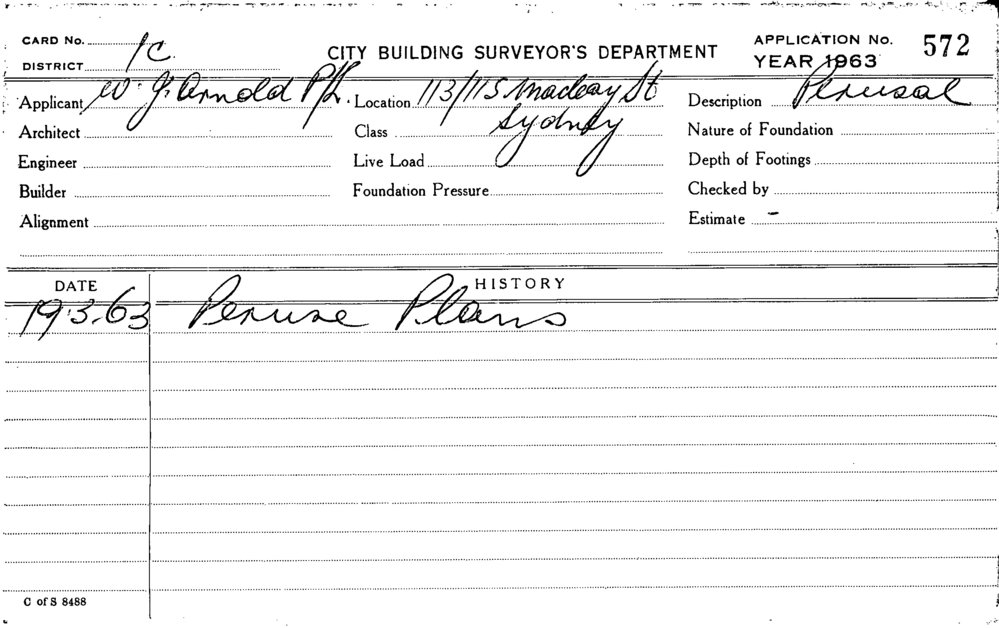 CARD No. CITY BUILDING SURVEYOR'S DEPARTMENT APPLICATION No. 572
DISTRICT 1C. YEAR 1963
Applicant W. J. Arnold P/L. Location 113/115 Macleay St Description Perusal
Sydney
Architect Class Nature of Foundation
Engineer Live Load Depth of Footings
Builder Foundation Pressure Checked by
Alignment Estimate -
DATE HISTORY
19.3.63 Peruse Plans
C of S 8488